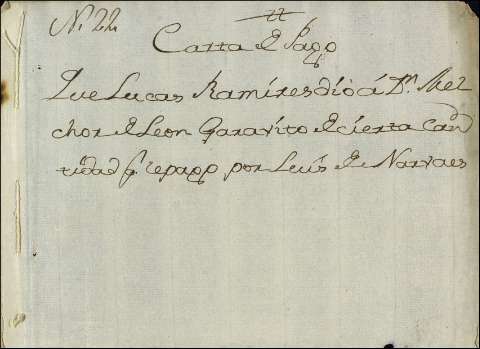 N. 22
22
Carta de Pago
Que Lucas Ramires dió á Dn. Mel
chor de Leon Garavito de cierta can
tidad q. le pago por Luis de Narvaes